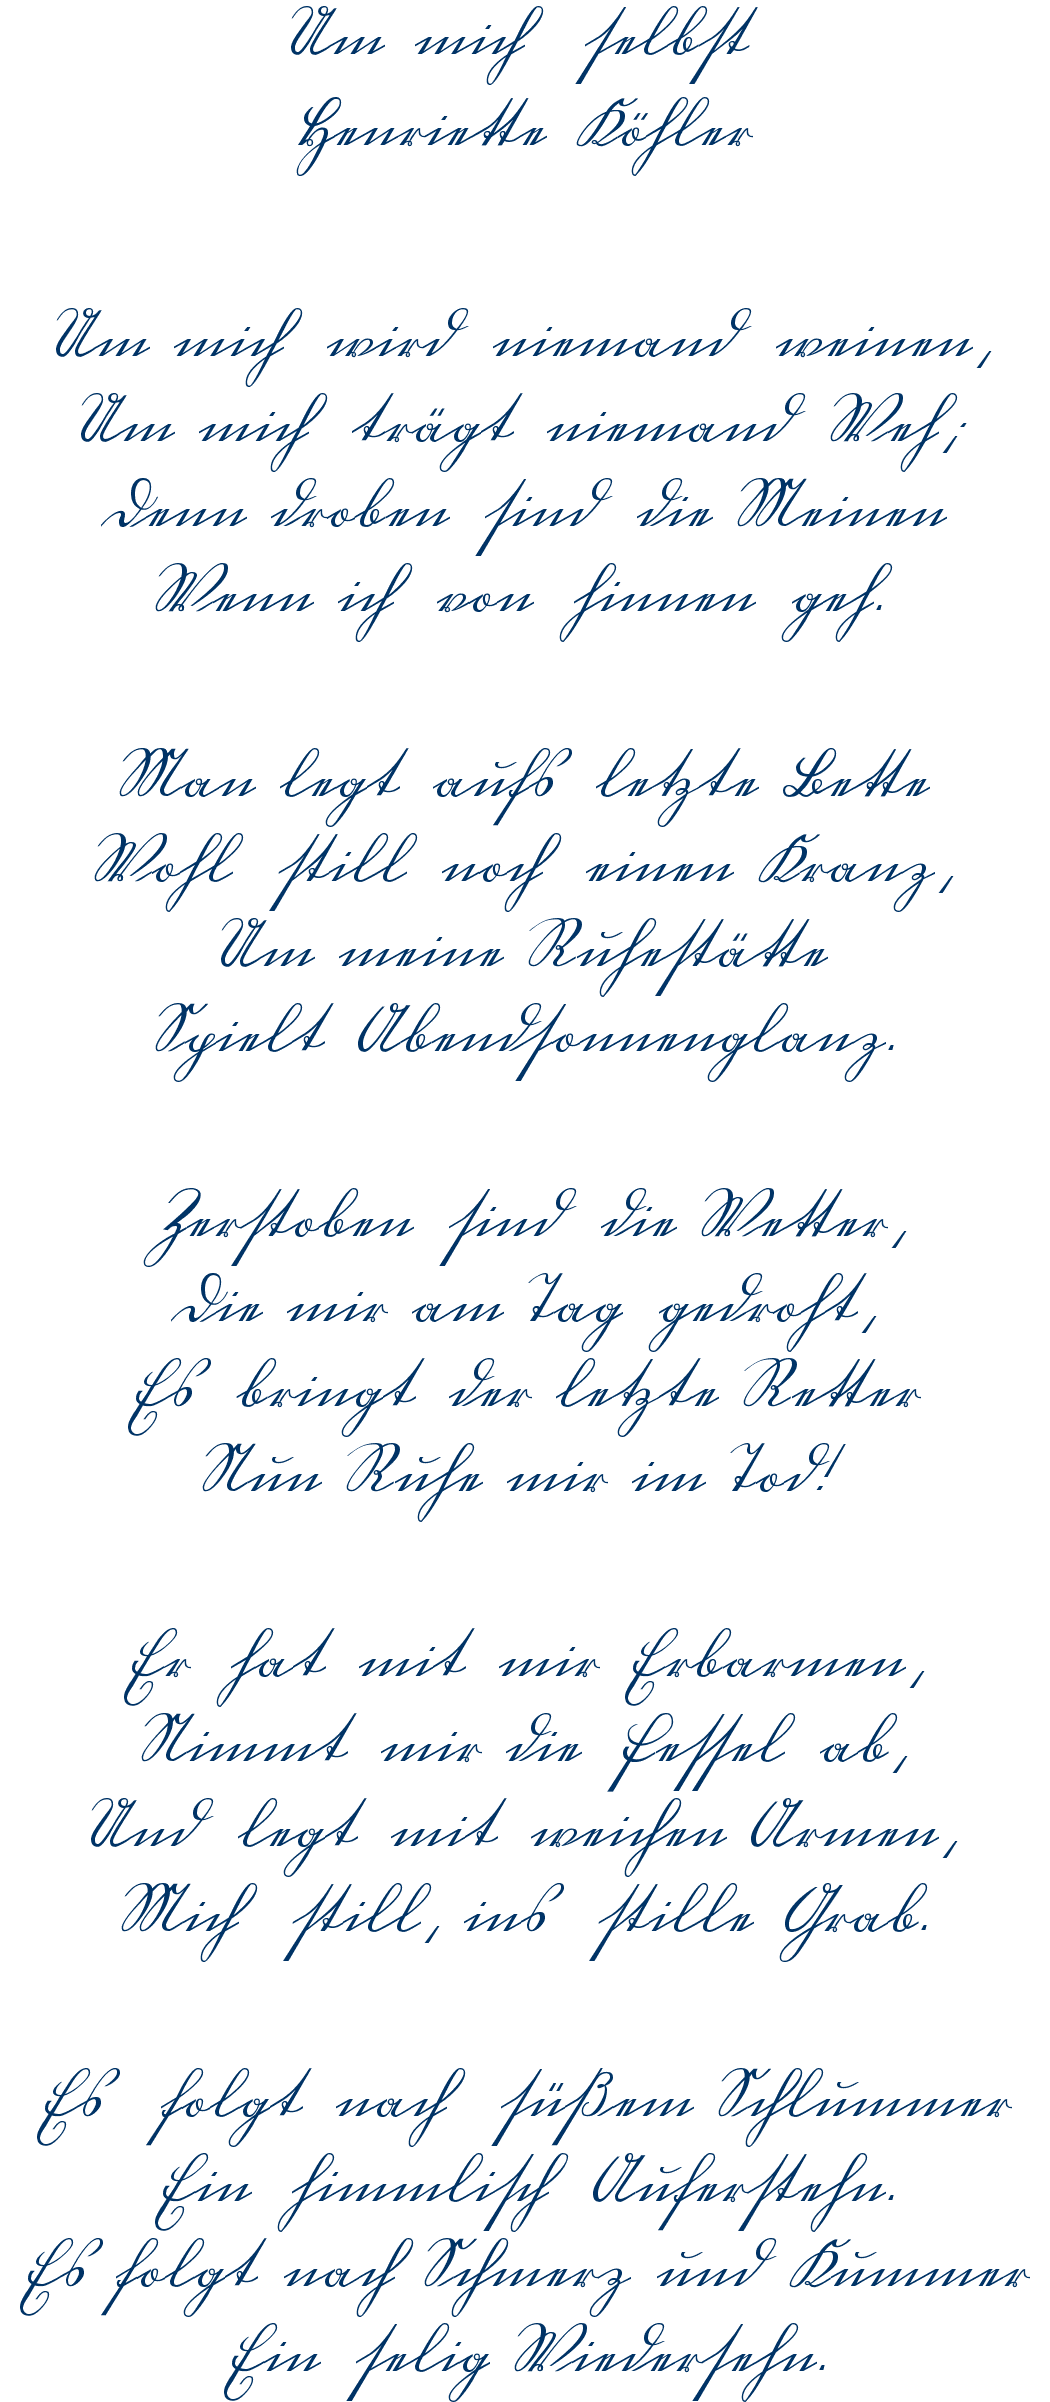 Um mich selbst
Henriette Köhler
Um mich wird niemand weinen,
Um mich trägt niemand Weh;
Denn droben sind die Meinen
Wenn ich von hinnen geh.
Man legt aufs letzte Bette
Wohl still noch einen Kranz,
Um meine Ruhestätte
Spielt Abendsonnenglanz.
Zerstoben sind die Wetter,
Die mir am Tag gedroht,
Es bringt der letzte Retter
Nun Ruhe mir im Tod!
Er hat mit mir Erbarmen,
Nimmt mir die Fessel ab,
Und legt mit weichen Armen,
Mich still, ins stille Grab.
Es folgt nach süßem Schlummer
Ein himmlisch Auferstehn.
Es folgt nach Schmerz und Kummer
Ein selig Wiedersehn.